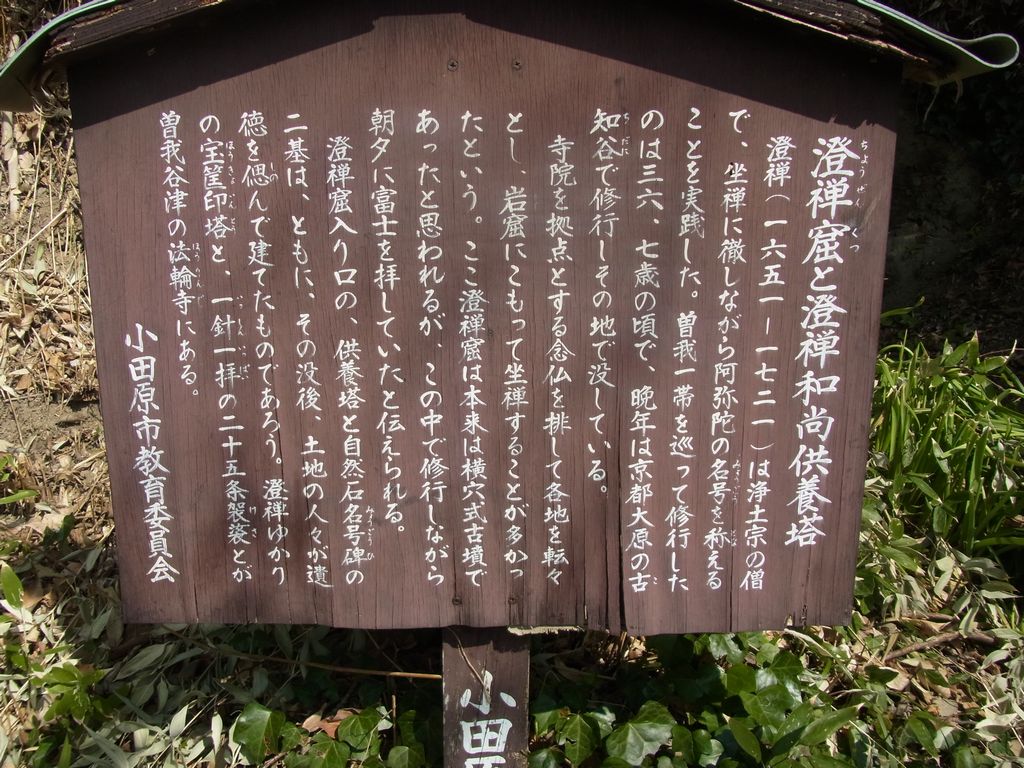 澄禅窟と澄禅和尚供養塔
澄禅(一六五一ー一七二一)は浄土宗の僧
で、坐禅に徹しながら阿弥陀の名号を称える
ことを実践した。曽我一帯を巡って修行した
のは三六、七歳の頃で、晩年は京都大原の古
知谷で修行しその地で没している。
寺院を拠点とする念仏を排して各地を転々
とし、岩窟にこもって坐禅することが多かっ
たという。ここ澄禅窟は本来は横穴式古墳で
あったと思われるが、この中で修行しながら
朝夕に富士を拝していたと伝えられる。
澄禅窟入り口の、供養塔と自然石名号碑の
二基は、ともに、その没後、土地の人々が遺
徳を偲んで建てたものであろう。澄禅ゆかり
の宝筐印塔と、一針一拝の二十五条袈裟とが
曽我谷津の法輪寺にある。
小田原市教育委員会
小田